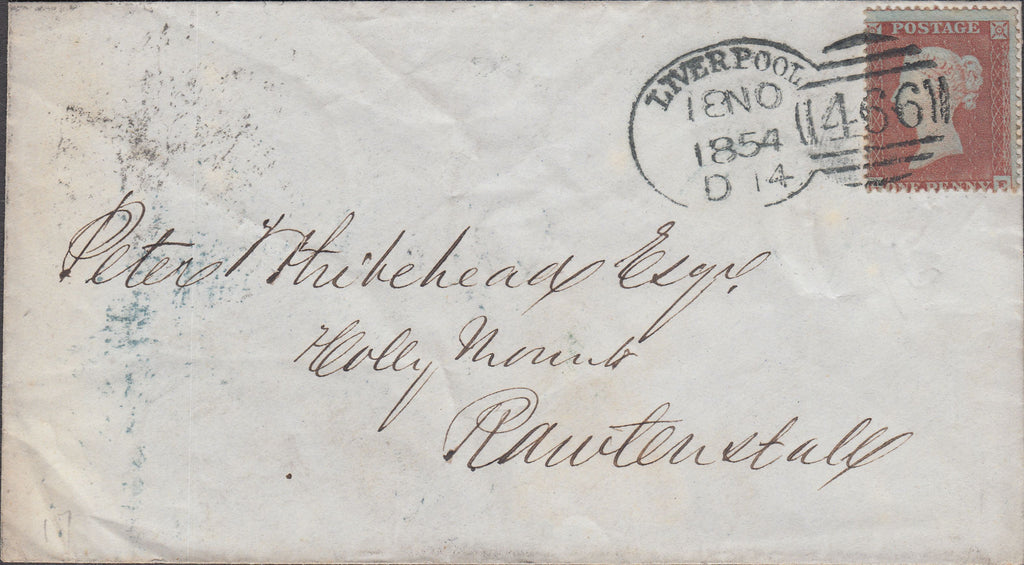 POSTAGE
LIVERPOOL
18NO
1854
D 14
466
ONE PENNY
Peter Whitehead Esqr.
Holly Mount
Rawtenstall
17